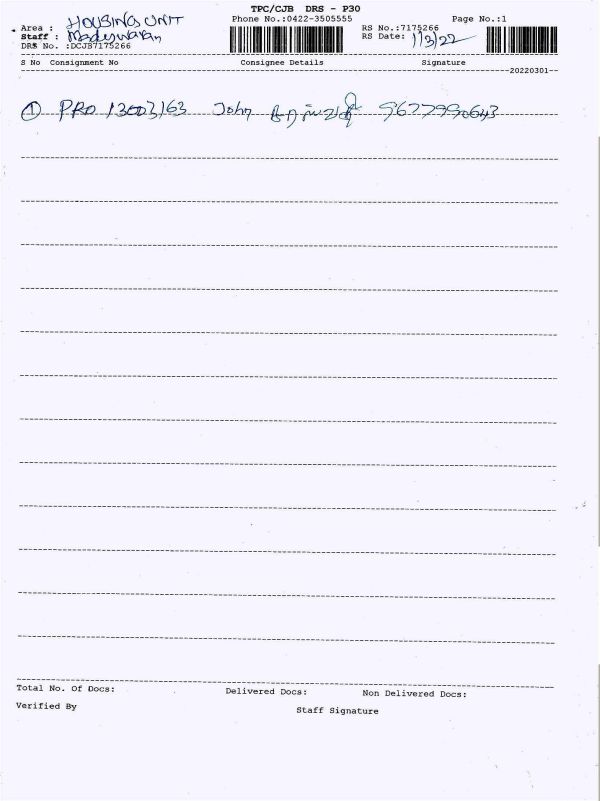 TPC/CJB DRS - P30
Area : HOUSING UNIT
Phone No.:0422-3505555
RS No.:7175266
Page No.:1
Staff : Madeswaran
RS Date: 1/3/22
DRS No. :DCJB7175266
S No Consignment No Consignee Details Signature
20220301
① PRO 13003163 John 9677990643
Total No. Of Docs: Delivered Docs: Non Delivered Docs:
Verified By Staff Signature